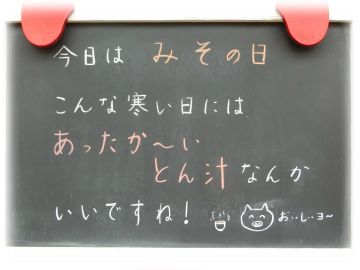 今日は みその日
こんな寒い日には
あったか～い
とん汁なんか
いいですね！ おい・しい・ヨ～